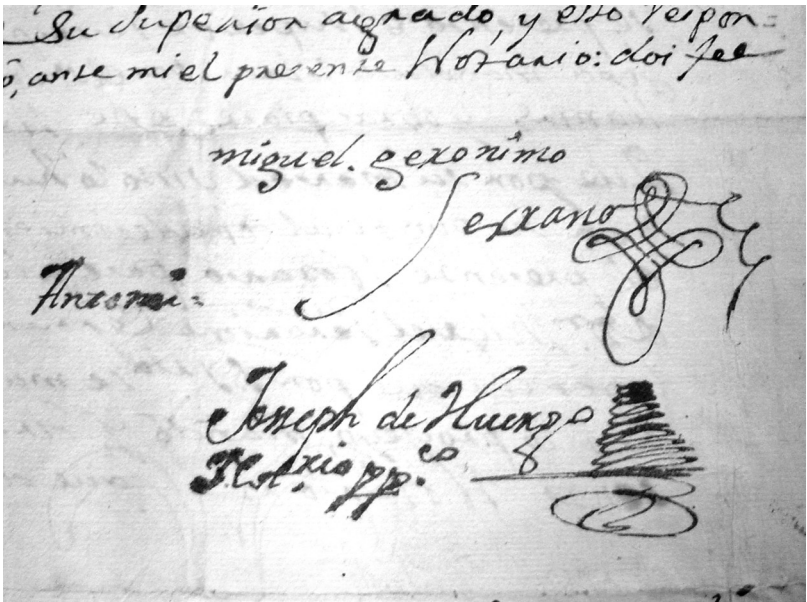 Su Superior agrado, y esto respon=
ô, ante mi el presente Notario: doi fee
miguel. geronimo
Serrano
Antemi=
Joseph de Huerzo
Not.rio pp.co